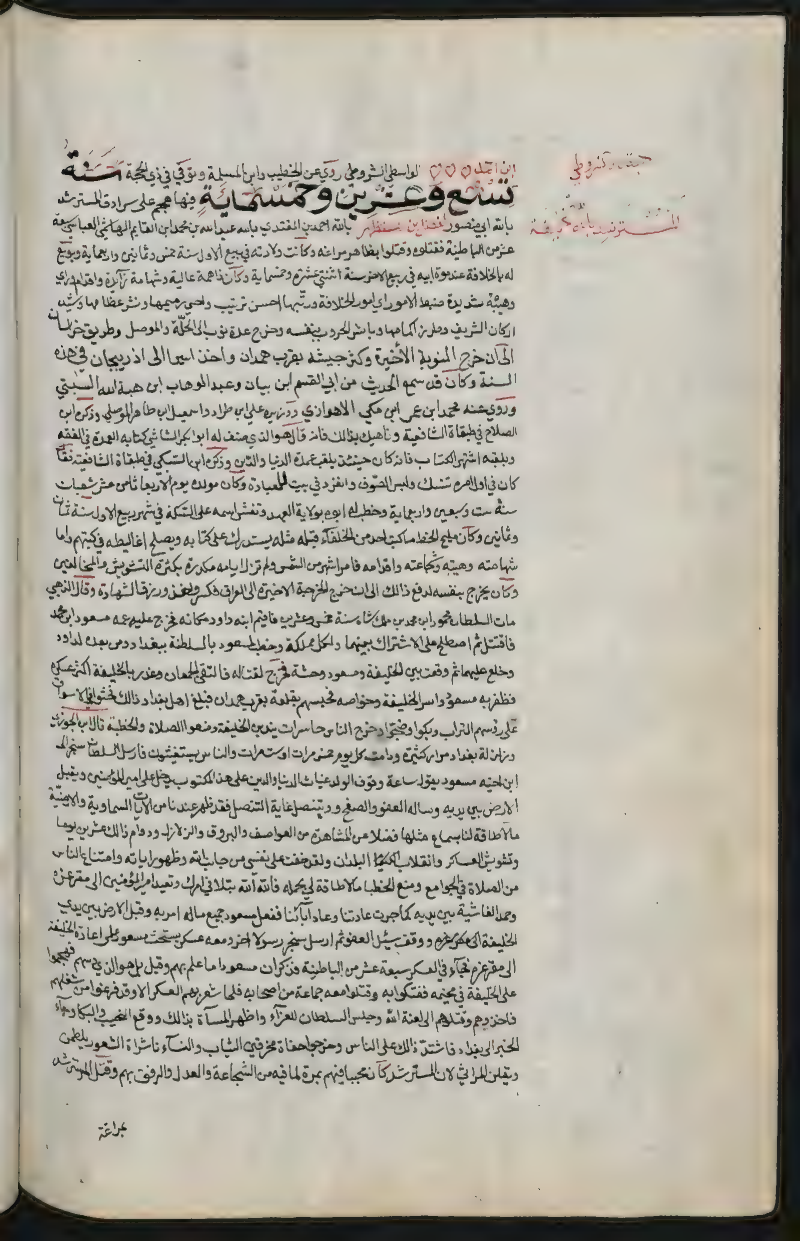 ابن احمد الواسطي الشروطي روى عن الخطيب وابن المسلمة وتوفي في ذي الحجة سنة
تسع وعشرين وخمسماية فيها هجم على سرادق المسترشد
بالله ابي منصور الفضل ابن المستظهر بالله احمد بن المقتدي بالله عبد الله بن محمد ابن القايم الهاشمي العباسي سبعة
عشر من الباطنية فقتلوه وقتلوا بظاهر مراغة وكانت ولادته في ربيع الاول سنة خمس وثمانين واربعماية وبويع
له بالخلافة عند موت ابيه في ربيع الاخر سنة اثنتي عشره وخمسماية وكان ذا همة عالية وشهامة زايدة واقدام وراي
وهيبة شديدة ضبط الامور اي امور الخلافة ورتبها احسن ترتيب واحيى رميمها ونشر عظامها وشيد
اركان الشريعة وطرز اكمامها وباشر الحروب بنفسه وخرج عدة نوب الى الحلة والموصل وطريق خراسان
الى ان خرج النوبة الأخيرة وكسر جيشه بقرب همدان واخذ اسيرا الى اذربيجان في هذه
السنة وكان قد سمع الحديث من ابي القسم ابن بيان وعبد الوهاب ابن هبة الله السبتي
وروى عنه محمد ابن عمر ابن مكي الاهوازي ووزيره علي ابن طراد واسمعيل ابن طاهر الموصلي وذكره ابن
الصلاح في طبقاة الشافعية وناهيك بذالك فانه قال هو الذي صنف له ابو بكر الشاشي كتابه العمدة في الفقه
وبلقبه اشتهر الكتاب فانه كان حينئذ يلقب عمدة الدنيا والدين وذكره ابن السبكي في طبقاة الشافعية فقال
كان في اول امره تنسك ولبس الصوف وانفرد في بيت للعبادة وكان مولده يوم الاربعا ثامن عشر شعبان
سنة ست وسبعين واربعماية وخطب له ابوه بولاية العهد ونقش اسمه على السكة في شهر ربيع الاول سنة ثمان
وثمانين وكان مليح الخط ما كتب احد من الخلفاء قبله مثله يستدرك على كتابه ويصلح اغاليطه في كتبهم واما
شهامته وهيبته وشجاعته واقدامه فامر اشهر من الشمس ولم تزل ايامه مكدرة بكثرة التشويش والمخالفين
وكان يخرج بنفسه لدفع ذالك الى ان خرج الخرجة الاخيرة الى العراق فكسر واخذ ورزق الشهادة وقال الذهبي
مات السلطان محمود ابن محمد بن ملك شاه سنة خمس وعشرين فاقيم ابنه داود مكانه فخرج عليه عمه مسعود ابن محمد
فاقتتل ثم اصطلح على الاشتراك بينهما ولكل مملكة وخطب لمسعود بالسلطنة ببغداد ومن بعده لداود
وخلع عليهما ثم وقعت بين الخليفة ومسعود وحشة فخرج لقتاله فالتقى الجمعان وغدر بالخليفة اكثر عسكره
فظفر به مسعود واسر الخليفة وخواصه فحبسهم بقلعة بقرب همدان فبلغ اهل بغداد ذالك فحثوا في الاسواق
على روسهم التراب وبكوا وضجوا وخرج النساء حاسرات يندبن الخليفة ومنعوا الصلاة والخطبة قال ابن الجوزي
وزلزلة بغداد مرارا كثيرة ودامت كل يوم خمس مرات او ست مرات والناس يستغيثون فارسل السلطان سنجر الى
ابن اخيه مسعود يقول ساعة وقوف الولد غياث الدنيا والدين على هذا المكتوب يدخل على امير المؤمنين ويقبل
الارض بين يديه وساله العفو والصفح ويتنصل غاية التنصل فقد ظهر عندنا من الآيات السماوية والارضية
ما لا طاقة لنا بسماع مثلها فضلا عن المشاهدة من العواصف والبروق والزلازل ودوام ذالك عشرين يوما
وتشويش العساكر وانقلاب البلدان ولقد خفت على نفسي من جانب الله وظهور اياته وامتناع الناس
من الصلاة في الجوامع ومنع الخطبا ما لا طاقة لي بحمله فالله الله بتلافي امرك وتعيد امير المؤمنين الى مقر عزه
وحمل الغاشية بين يديه كما جرت عادتنا وعادة آبائنا ففعل مسعود جميع ما امره به وقبل الارض بين يدي
الخليفة ووقف يسئل العفو ثم ارسل سنجر رسولا اخر ومعه عسكر يستحث مسعود على اعادة الخليفة
الى مقر عزه فجاء في العسكر سبعة عشر من الباطنية وذكر ان مسعود اما علم بهم وقيل بل هو الذي دسهم فهجموا
على الخليفة في مخيمه ففتكوا به وقتلوا معه جماعة من اصحابه فلما شعر بهم العسكر الا وقد فرغوا من شغلهم
فاخذوهم وقتلوهم الى لعنة الله وجلس السلطان للعزاء واظهر المسآة بذالك ووقع النحيب والبكا وجاء
الخبر الى بغداد فاشتد ذالك على الناس وخرجوا حفاة مخرقي الثياب والنساء ناشراة الشعور يلطمن
ويقلن المراثي لان المسترشد كان محببا فيهم بمرة لما فيه من الشجاعة والعدل والرفق بهم وقتل المسترشد
بمراغة
المسترشد بالله الخليفة